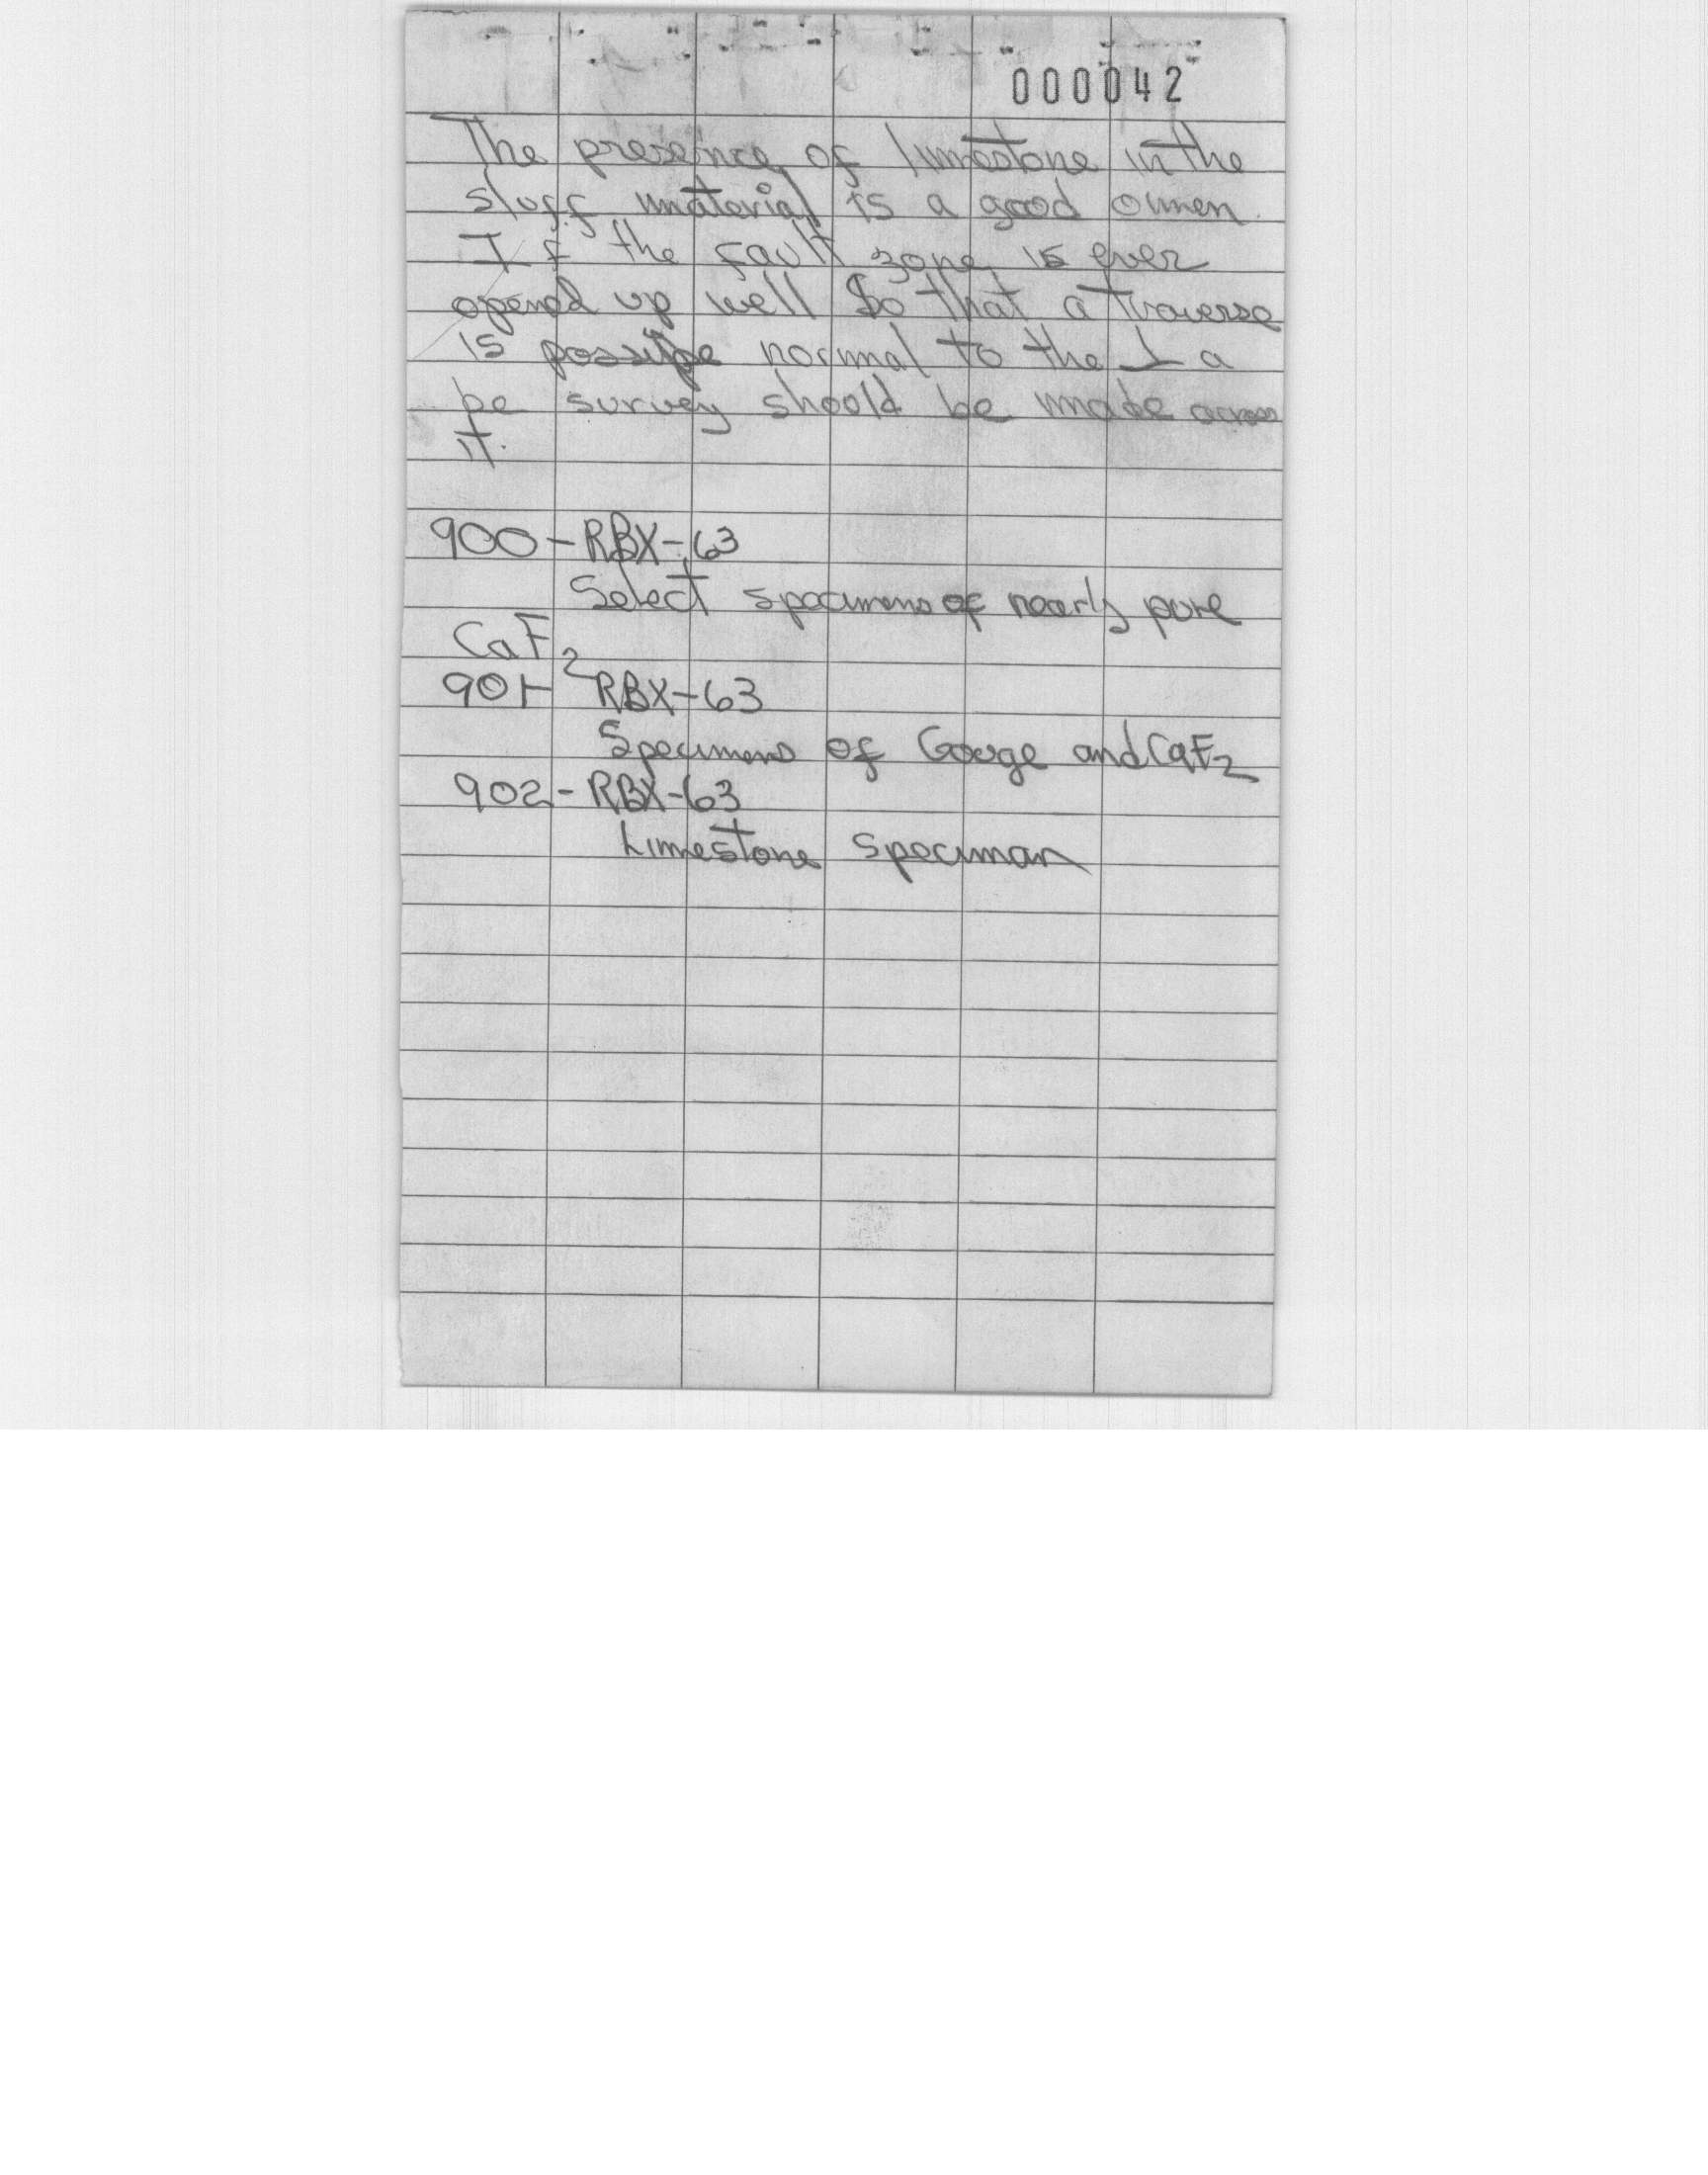 000042
The presence of limestone in the
sluff material is a good omen.
If the fault zone is ever
opened up well so that a traverse
is possible normal to the ⊥ a
be survey should be made across
it.
900-RBX-63
Select specimens of nearly pure
CaF2
901-RBX-63
Specimens of Gouge and CaF2
902-RBX-63
Limestone Speciman